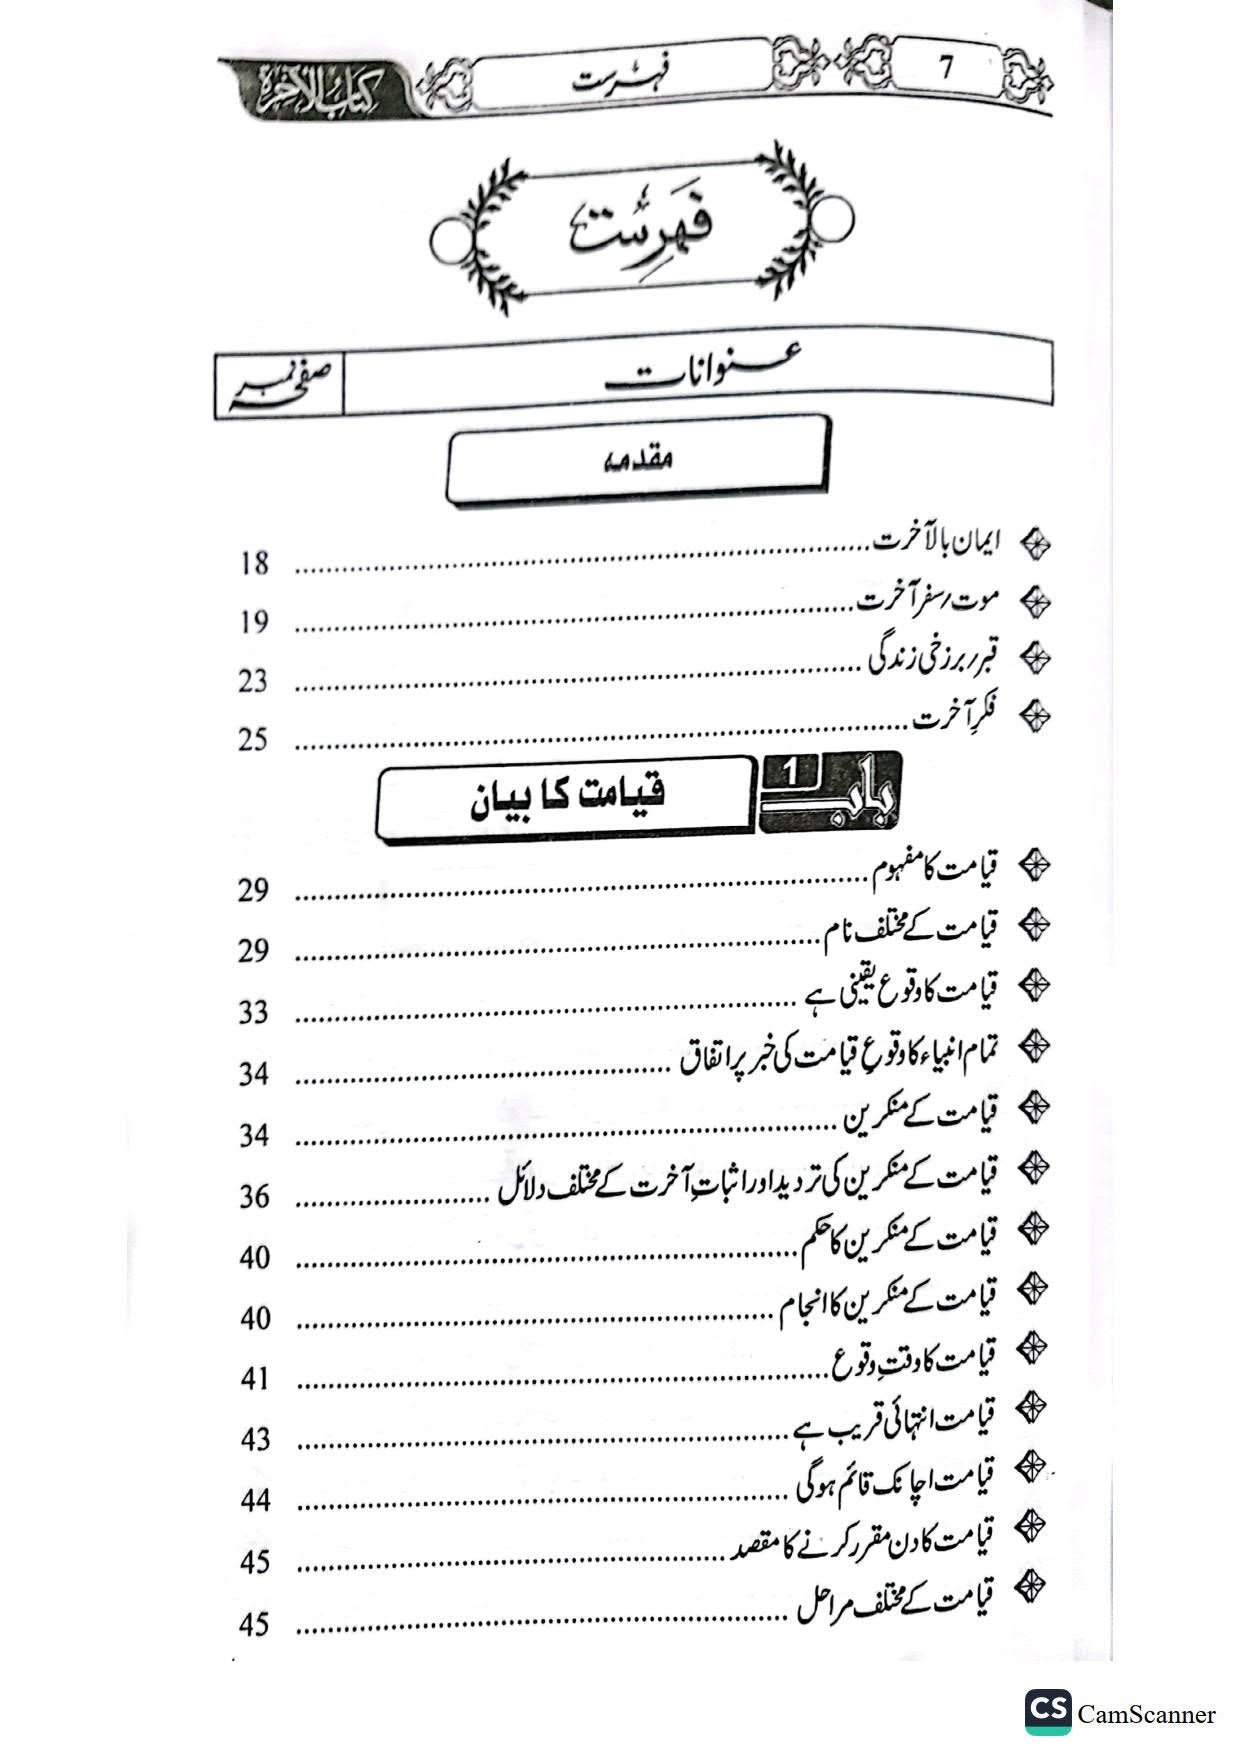 7 فہرست کتاب الآخرۃ
فہرست
عنوانات صفحہ نمبر
مقدمہ
ایمان بالآخرت 18
موت/سفر آخرت 19
قبر/برزخی زندگی 23
فکرِ آخرت 25
باب 1 قیامت کا بیان
قیامت کا مفہوم 29
قیامت کے مختلف نام 29
قیامت کا وقوع یقینی ہے 33
تمام انبیاء کا وقوعِ قیامت کی خبر پر اتفاق 34
قیامت کے منکرین 34
قیامت کے منکرین کی تردید اور اثباتِ آخرت کے مختلف دلائل 36
قیامت کے منکرین کا حکم 40
قیامت کے منکرین کا انجام 40
قیامت کا وقتِ وقوع 41
قیامت انتہائی قریب ہے 43
قیامت اچانک قائم ہوگی 44
قیامت کا دن مقرر کرنے کا مقصد 45
قیامت کے مختلف مراحل 45
CS CamScanner